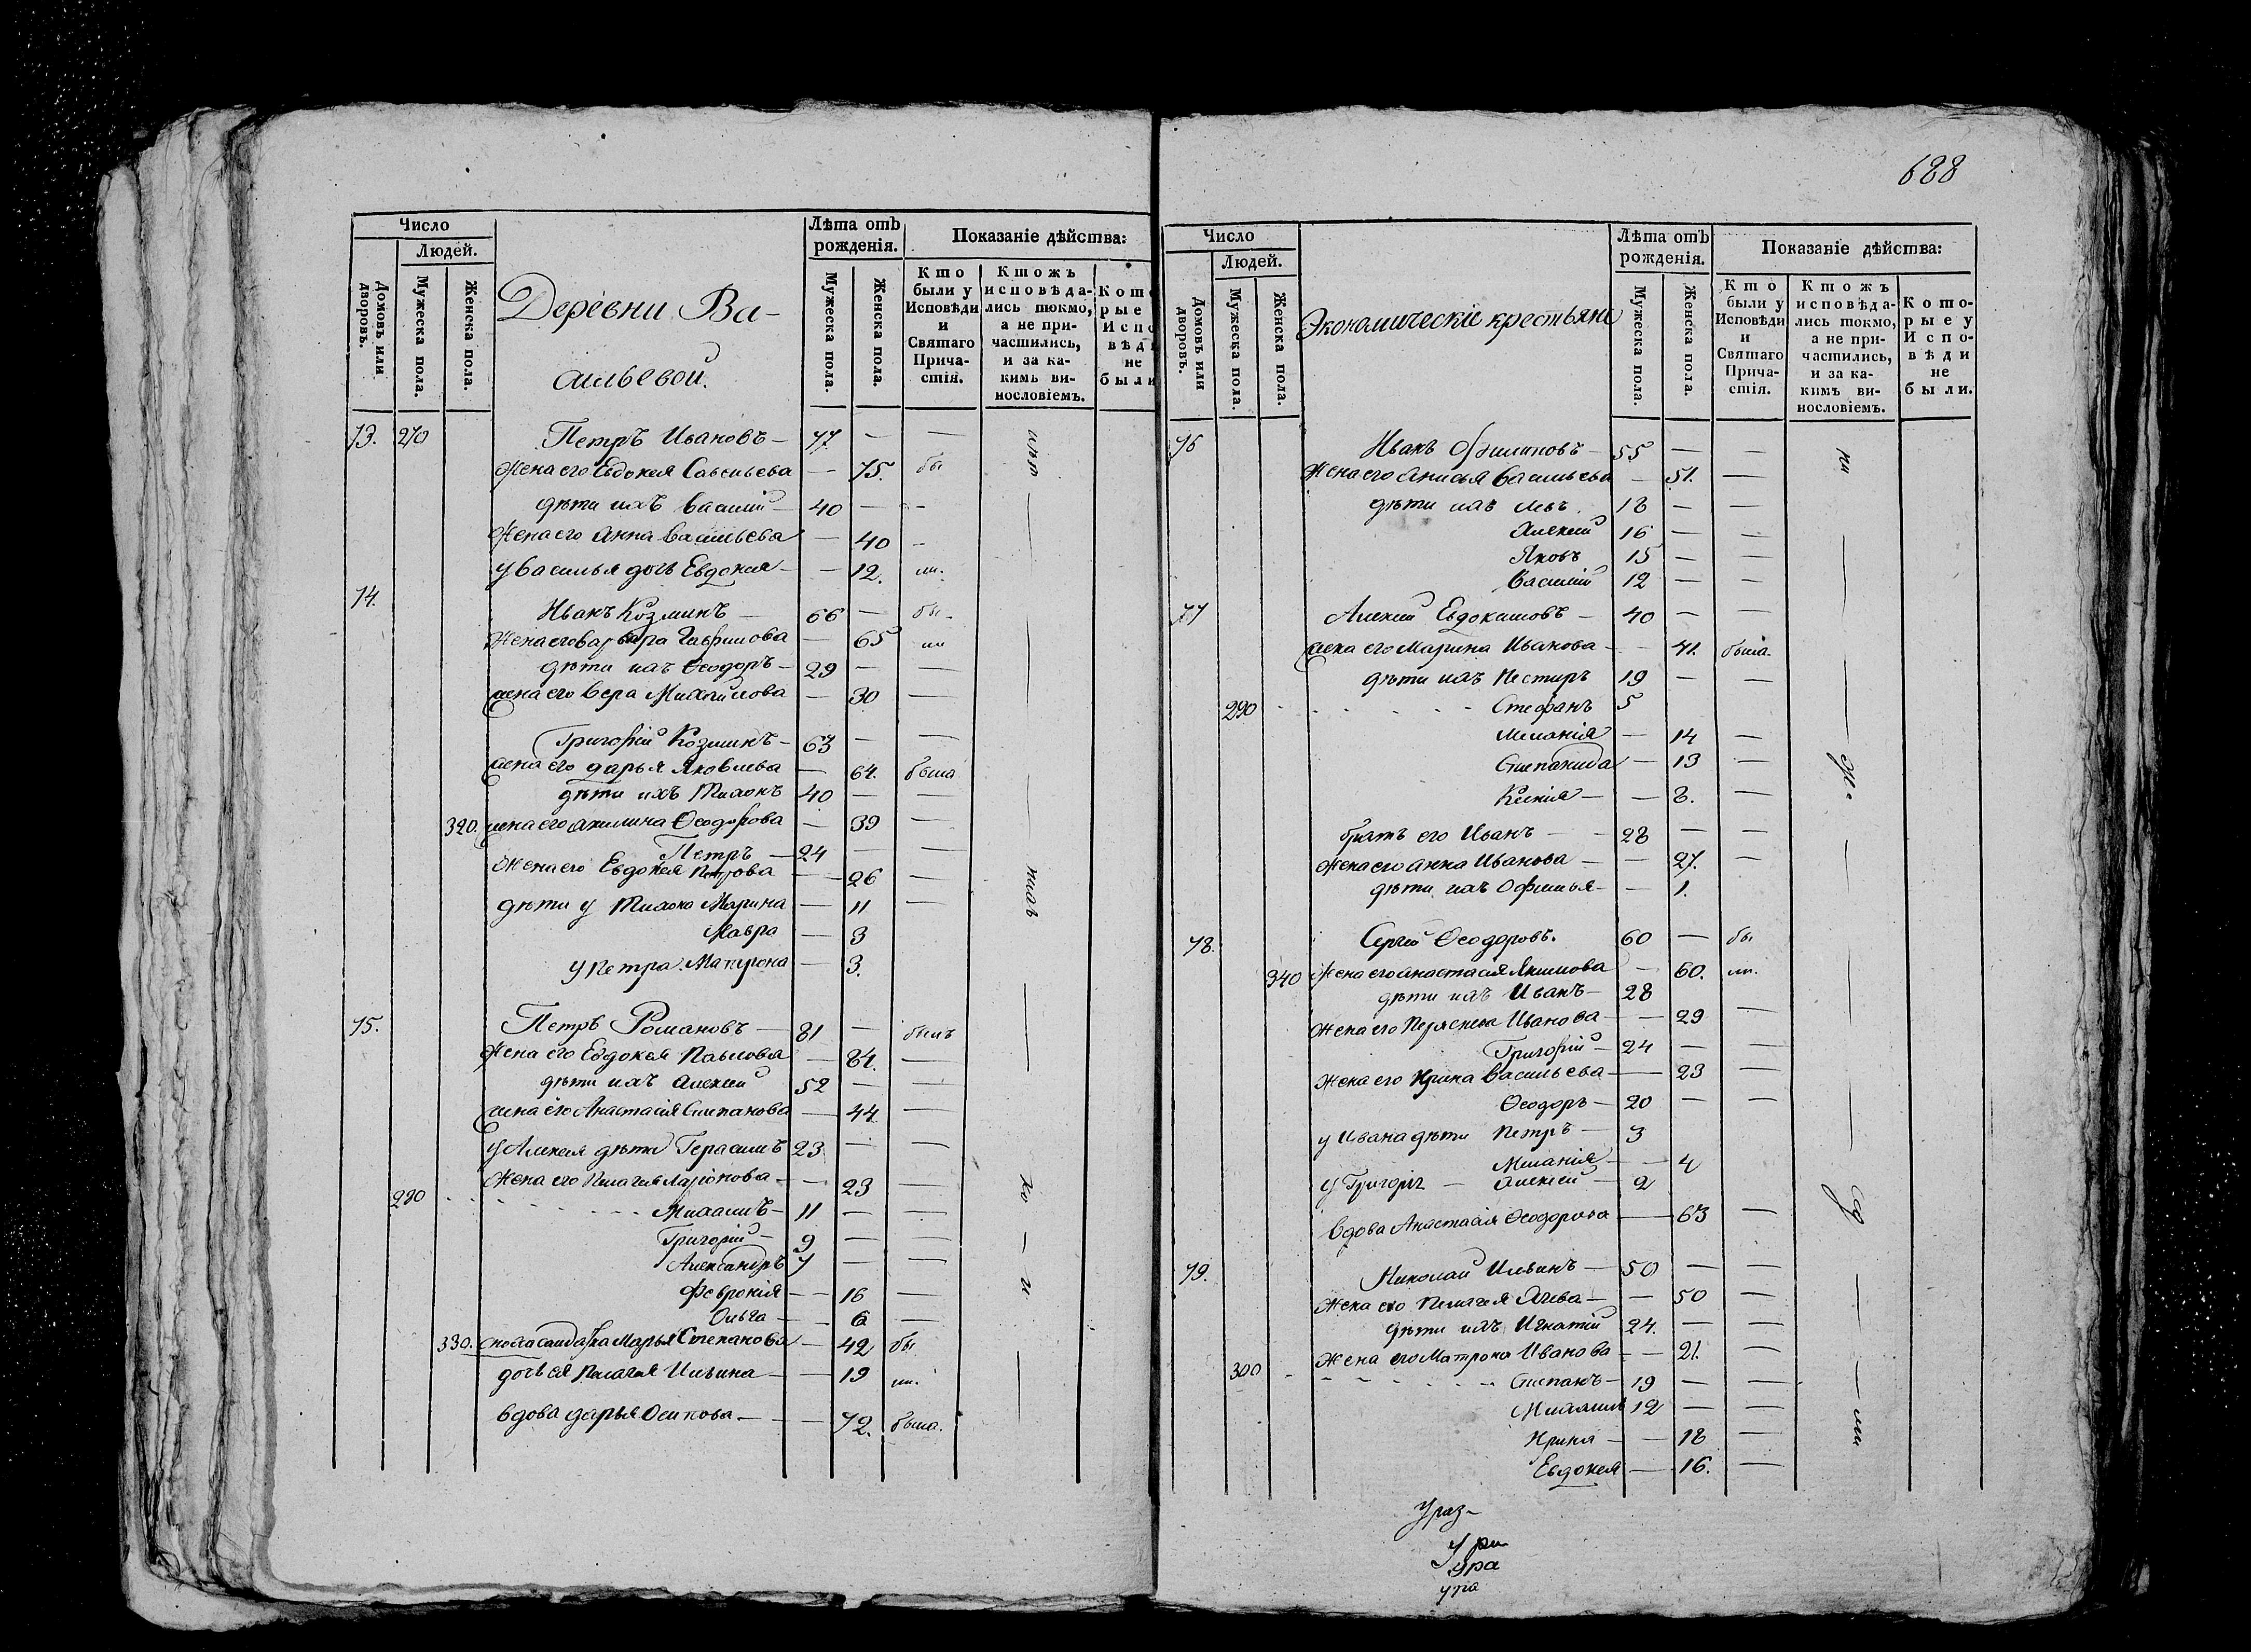 688
Число
Людей.
Домовъ или дворовъ.
Мужеска пола.
Женска пола.
Деревни Ва-
сильевой.
Лѣта отъ рожденія.
Мужеска пола.
Женска пола.
Показаніе дѣйства:
Кто были у Исповѣди и Святаго Причастія.
Ктожъ исповѣдались токмо, а не причастились, и за какимъ винословіемъ.
73. 270 Петръ Ивановъ — 77. — —
Жена его Евдокея Савельева — 75. бы
дѣти ихъ Василій — 40 — —
Жена его Анна Васильева — 40 —
у Василья дочь Евдокия — — 12. ли.
74. Иванъ Козминъ — 66 — бы
Жена его Варвара Гаврилова — 65 ли
дѣти ихъ Ѳеодоръ — 29 — —
жена его Вера Михайлова — 30 —
Григорій Козминъ — 63 — —
жена его дарья Яковлева — 64. была
дѣти ихъ Тихонъ 40 — —
320. жена его акилина Ѳеодорова — 39 —
Петръ — 24 — —
Жена его Евдокея Петрова — 26 —
дѣти у Тихона Марина — 11 —
Мавра — 3
у Петра Матрона — 3.
75. Петръ Романовъ — 81 — былъ
Жена его Евдокея Павлова — 84. —
дѣти ихъ Алексей 52 — —
жена его Анастасія Степанова — 44 —
у Алексея дѣти Герасимъ 23 — —
Жена его Пелагея Ларіонова — 23 —
280 Михаилъ — 11 — —
Григорій — 9 — —
Александръ 7 — —
Феврония — 16 —
Ольга — 6 —
330. сноха солдатка Марья Степанова — 42 бы
дочь ея Пелагея Ильина — 19 ли.
вдова дарья Осипова — — 72. была.
Число
Людей.
Домовъ или дворовъ.
Мужеска пола.
Женска пола.
Экономическіе крестьяне
Лѣта отъ рожденія.
Мужеска пола.
Женска пола.
Показаніе дѣйства:
Кто были у Исповѣди и Святаго Причастія.
Ктожъ исповѣдались токмо, а не причастились, и за какимъ винословіемъ.
Которые у Исповѣди не были.
76 Иванъ Филиповъ — 55 — —
Жена его Анисья Васильева — 51. —
дѣти ихъ Левъ 18 — —
Алексей 16 — —
Яковъ 15 — —
Василій 12 — —
77 Алексей Евдокимовъ — 40 — —
жена его Марина Иванова — 41. была.
дѣти ихъ Нестиръ 19 — —
290 Стефанъ 5
Меланія — 14 —
Степанида — 13 —
Ксенія — — 8. —
братъ его Иванъ — 28 — —
Жена его анна Иванова — 27. —
дѣти ихъ Офимья — 1.
78. Сергей Ѳеодоровъ. 60 — бы
340 Жена его Анастасія Якимова — 60. ли.
дѣти ихъ Иванъ — 28
Жена его Иванова — 29 —
Григорій — 24 — —
Жена его Ирина Васильева — 23 —
Ѳеодоръ — 20 — —
у Ивана дѣти Петръ — 3
Меланія — 4
у Григорія — Алексей — 2
вдова Анастасія Ѳеодорова — 63 —
79. Николай Ильинъ — 50 — —
Жена его Пелагея — 50 —
дѣти ихъ Игнатій 24. — —
Жена его Матрона Иванова — 21. —
300 Степанъ — 19 — —
Михаилъ 12 — —
Ирина — 18 —
Евдокея — 16. —